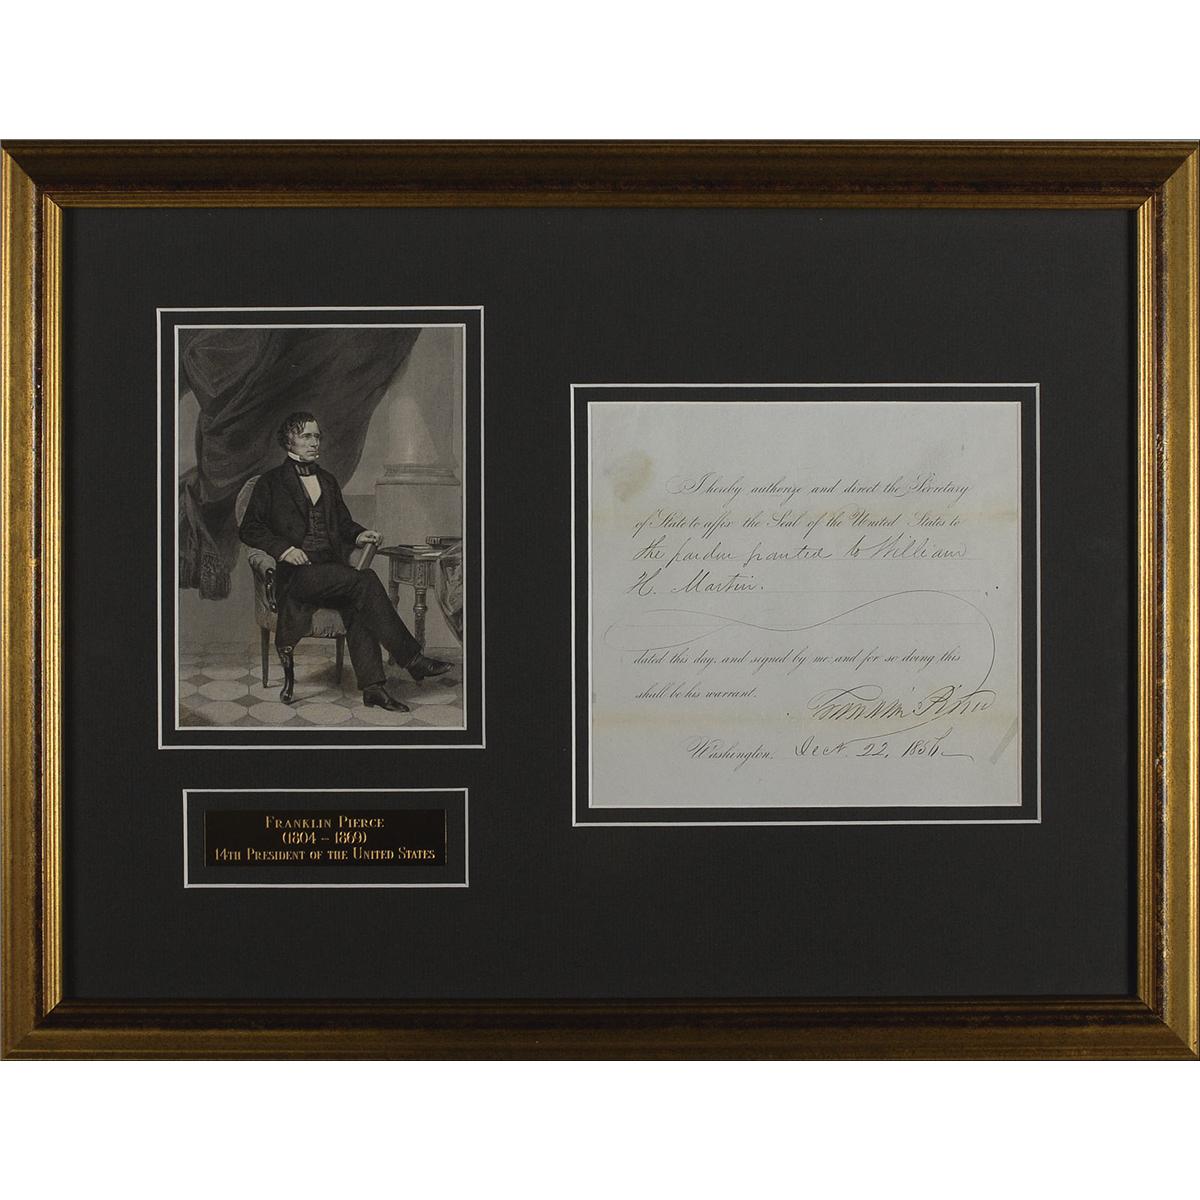 FRANKLIN PIERCE
(1804 – 1869)
14TH PRESIDENT OF THE UNITED STATES
I hereby authorize and direct the Secretary
of State to affix the Seal of the United States to
the pardon granted to William
H. Martin.
dated this day, and signed by me and for so doing this
shall be his warrant.
Franklin Pierce
Washington, Decr. 22, 1856